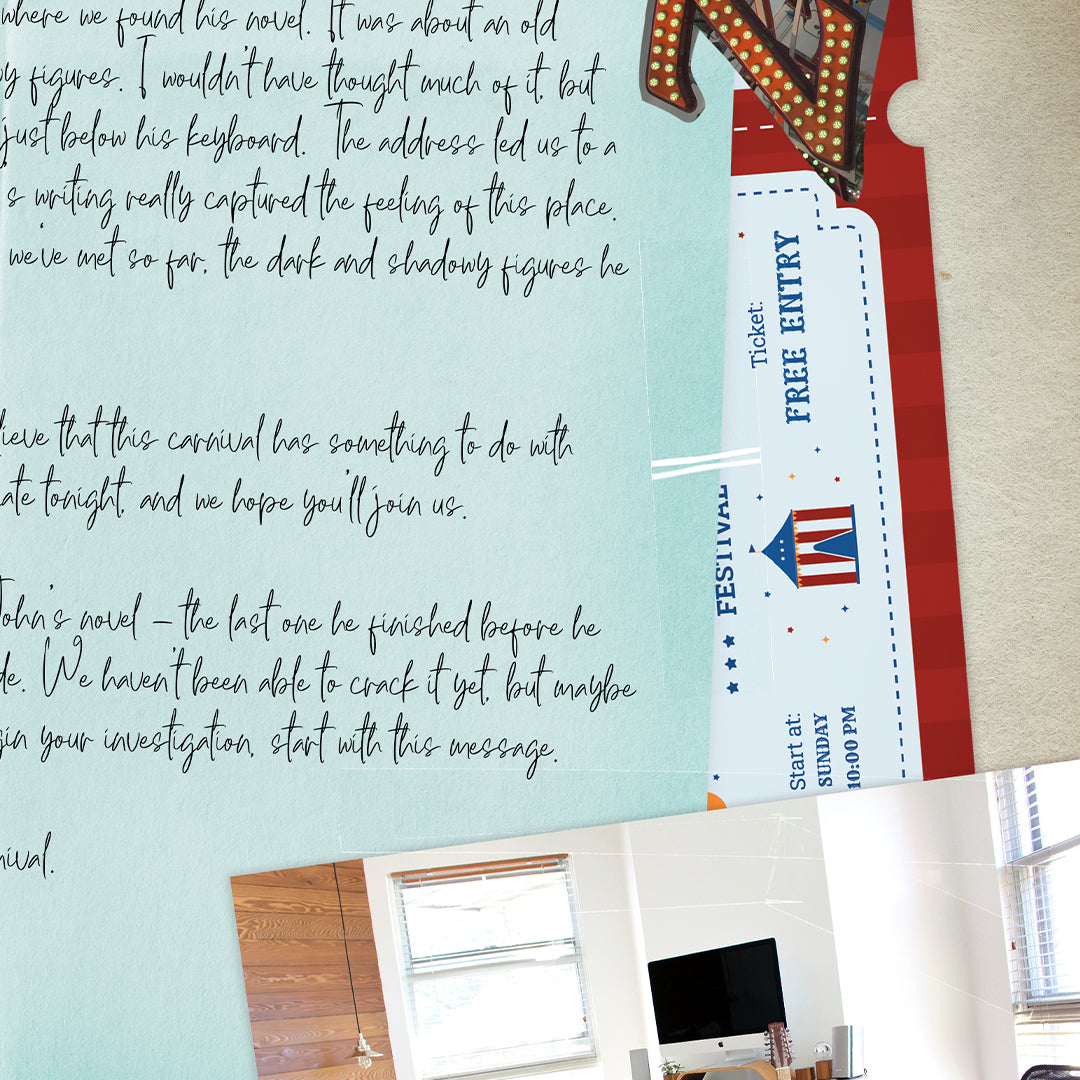 where we found his novel. It was about an old
y figures. I wouldn't have thought much of it, but
just below his keyboard. The address led us to a
's writing really captured the feeling of this place.
we've met so far, the dark and shadowy figures he
lieve that this carnival has something to do with
ate tonight, and we hope you'll join us.
John's novel – the last one he finished before he
de. We haven't been able to crack it yet, but maybe
gin your investigation, start with this message.
nival.
Ticket:
FREE ENTRY
FESTIVAL
Start at:
SUNDAY
10:00 PM